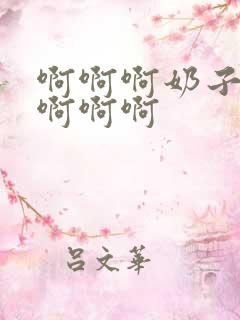 啊啊啊奶子
啊啊啊
吕文华